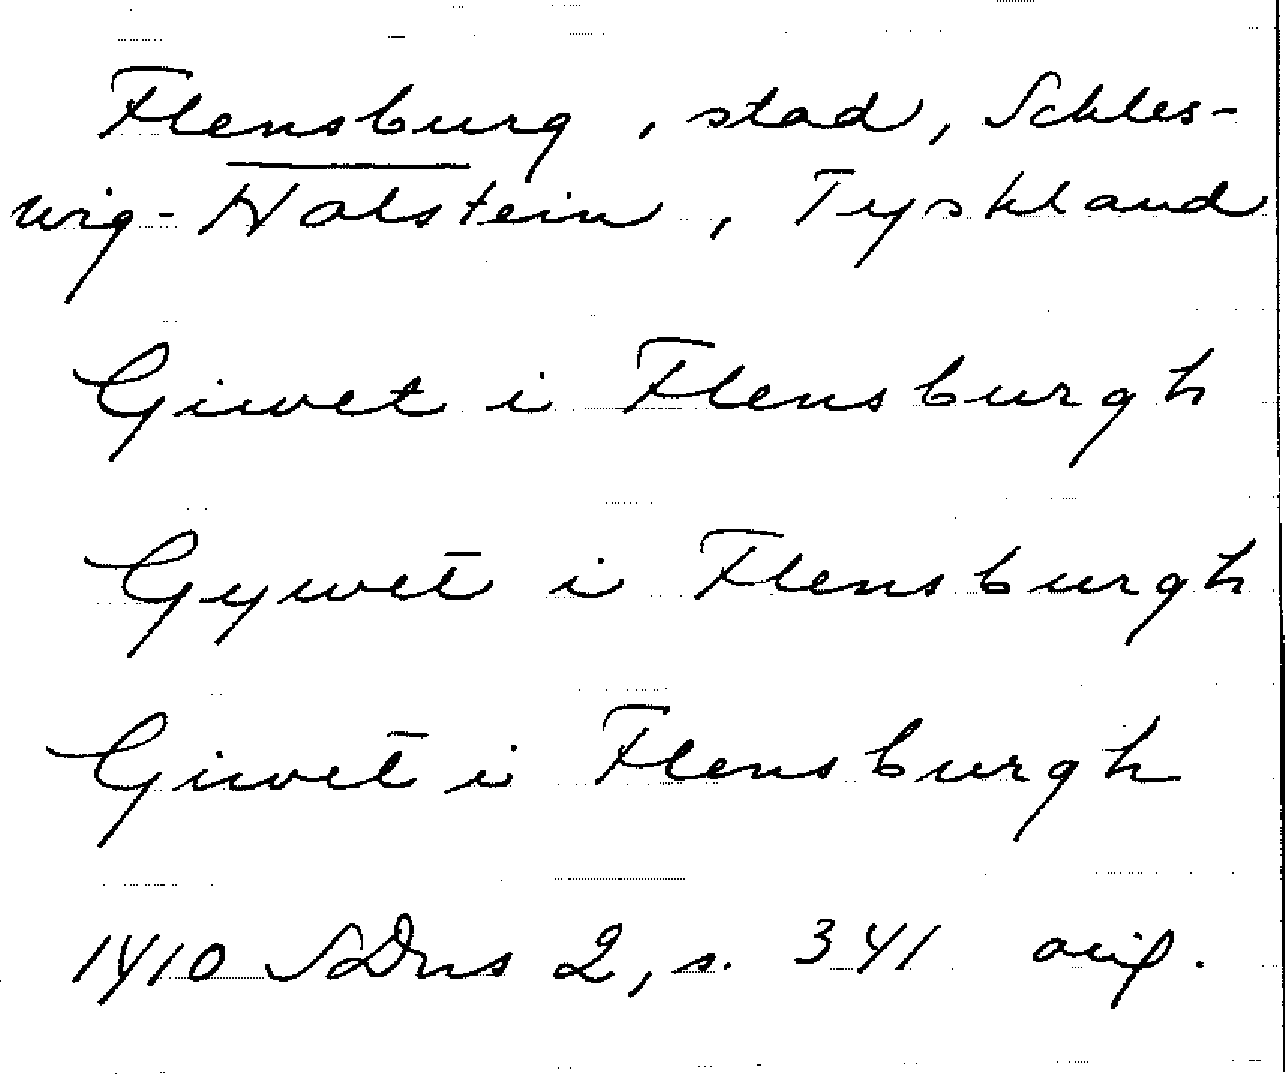 Flensburg, stad, Schles-
wig-Holstein, Tyskland
Giwet i Flensburgh
Gywet̄ i Flensburgh
Giwet̄ i Flensburgh
1410 SDns 2, s. 341 orig.